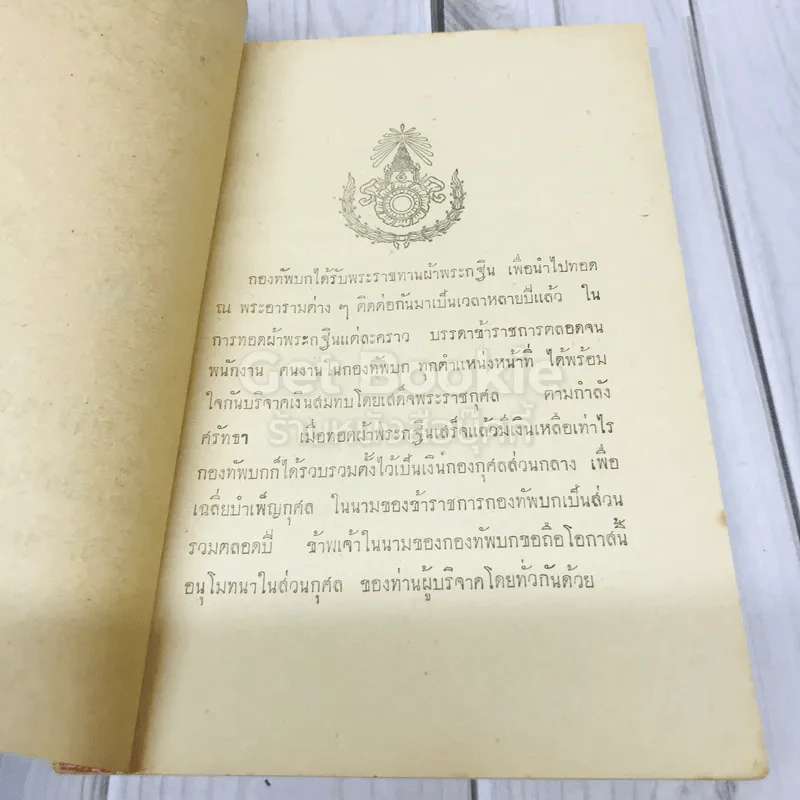 กองทัพบกได้รับพระราชทานผ้าพระกฐิน เพื่อนำไปทอด
ณ พระอารามต่าง ๆ ติดต่อกันมาเป็นเวลาหลายปีแล้ว ใน
การทอดผ้าพระกฐินแต่ละคราว บรรดาข้าราชการตลอดจน
พนักงาน คนงานในกองทัพบก ทุกตำแหน่งหน้าที่ ได้พร้อม
ใจกันบริจาคเงินสมทบโดยเสด็จพระราชกุศล ตามกำลัง
ศรัทธา เมื่อทอดผ้าพระกฐินเสร็จแล้วมีเงินเหลือเท่าไร
กองทัพบกก็ได้รวบรวมตั้งไว้เป็นเงินกองกุศลส่วนกลาง เพื่อ
เฉลี่ยบำเพ็ญกุศล ในนามของข้าราชการกองทัพบกเป็นส่วน
รวมตลอดปี ข้าพเจ้าในนามของกองทัพบกขอถือโอกาสนี้
อนุโมทนาในส่วนกุศล ของท่านผู้บริจาคโดยทั่วกันด้วย
Get Bookie
ร้านหนังสือบุ๊คกี้